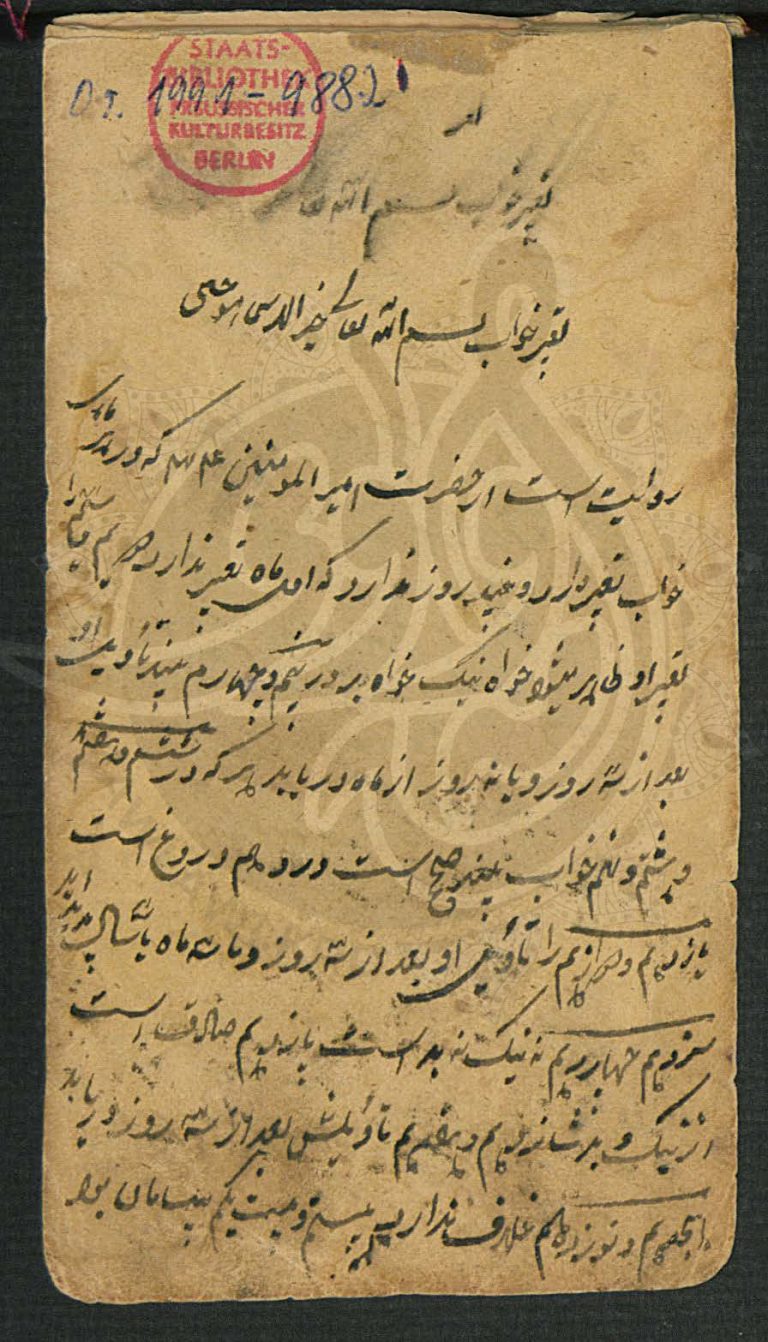 STAATS-
BIBLIOTHEK
PREUSSISCHER
KULTURBESITZ
BERLIN
Or. 1991-9882
تعبیر خواب بسم الله
تعبیر خواب بسم الله تعالی خیر
روایت است از حضرت امیر المومنین که در هر ماهی
خواب تعبیر دارد و چند روز ندارد که اول ماه تعبیر ندارد دویم سیم را
تعبیر او ظاهر میشود خواه نیک خواه بد در پنجم و چهارم بیند تاویل او
بعد از سه روز و یا نه روز از ماه دریابد هر که در ششم و هفتم
و هشتم و نهم خواب بیند صحیح است و در دهم دروغ است
یازدهم و دوازدهم را تاویل او بعد از سه روز و یا سه ماه یا سال پدید اید
سیزدهم چهاردهم نه نیک نه بد است پانزدهم صادق است
از نیک و بد شانزدهم و هفدهم تاویلش بعد از سه روز دریابد
هیجدهم و نوزدهم خلاف ندارد بیستم و بیست یکم پشیمان بود